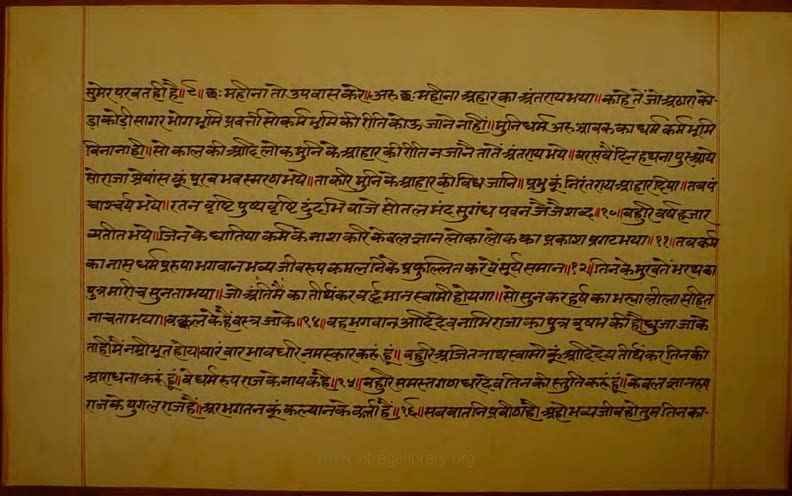 सुमेर परवत ही है॥८॥ छः महीना तो उपवास करे॥ अरु छः महीना अहार का अंतराय भया॥ काहे तें जो अठारा को-
ड़ा कोड़ी सागर भोग भूमि प्रवर्त्ती सो कर्म भूमि की रीति कोऊ जाने नाहीं॥ मुनि धर्म अरु श्रावक का धर्म कर्म भूमि
बिना नाही॥ सो काल की आदि लोक मुनि के आहार की रीति न जानै तातें अंतराय भये॥ वरसवें दिन हथनापुर आये
सो राजा श्रेयांस कूं पूरब भव स्मरण भये॥ ता करि मुनि के आहार की विध जानि॥ प्रभु कूं निरंतराय आहार दिया॥ तब पं
चाश्चर्य भये॥ रतन वृष्टि पुष्प वृष्टि दुंदभि बाजे सीतल मंद सुगंध पवन जै जै शब्द॥१०॥ बहुरि वर्ष हजार
व्यतीत भये॥ जिन के घातिया कर्म के नाश करि केवल ज्ञान लोकालोक का प्रकाश प्रगट भया॥११॥ तब कर्म
का नास धर्म प्ररुपा भगवान भव्य जीव रुप कमल निके प्रफुल्लित करवे सूर्य समान॥१२॥ तिन के मुख तें भरथ का
पुत्र मारीच सुनता भया॥ जो अंतिमैं का तीर्थंकर वर्द्धमान स्वामी होयगा॥ सो सुन कर हर्ष का भरा लीला सहित
नाचता भया॥ वक्कल के हैं वस्त्र जाके॥१४॥ वह भगवान आदि देव नाभि राजा का पुत्र वृषभ की है धुजा जाके
ताही मैं नम्रीभूत होय॥ वारंवार भाव धरि नमस्कार करुं हूं॥ बहुरि अजित नाथ स्वामी कूं आदि देय तीर्थंकर तिन की
आराधना करुं हूं॥ वे धर्म रुप राज के नायक है॥१५॥ बहुरि समस्त गणधर देव तिन की स्तुति करुं हूं॥ केवल ज्ञान रुप
राज के युगल राज हैं॥ अर भगतन कूं कल्यान के कर्ता हैं॥१६॥ सब बातनि प्रवीण है॥ अहो भव्य जीव हो तुम तिन का-
www.vitragelibrary.org